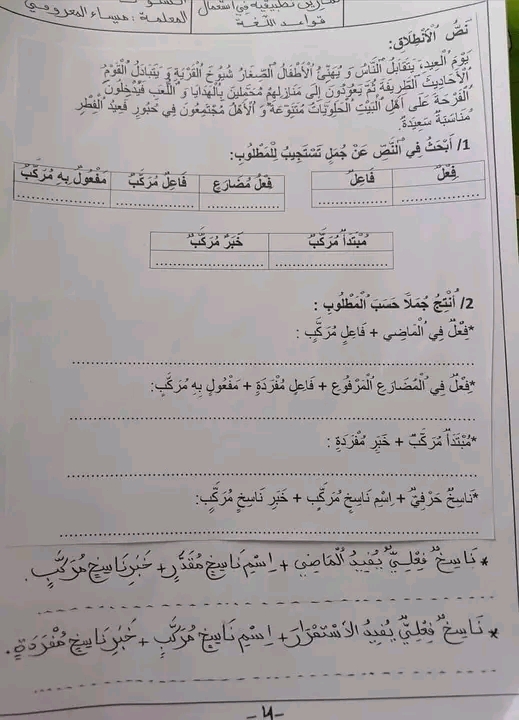 تمارين تطبيقية في استعمال
قواعد اللغة
المعلمة : ميساء المعروفي
نَصُّ الْاِنْطِلَاقِ:
يَوْمَ الْعِيدِ، يَتَقَابَلُ النَّاسُ وَ يُهَنِّئُ الْأَطْفَالُ الصِّغَارُ شُيُوخَ الْقَرْيَةِ وَ يَتَبَادَلُ الْقَوْمُ
الْأَحَادِيثَ الطَّرِيفَةَ ثُمَّ يَعُودُونَ إِلَى مَنَازِلِهِمْ مُحَمَّلِينَ بِالْهَدَايَا وَ اللُّعَبِ فَيُدْخِلُونَ
الْفَرْحَةَ عَلَى أَهْلِ الْبَيْتِ الْحَلَوِيَّاتُ مُتَنَوِّعَةٌ وَ الْأَهْلُ مُجْتَمِعُونَ فِي حُبُورٍ فَعِيدُ الْفِطْرِ
مُنَاسَبَةٌ سَعِيدَةٌ.
1/ أَبْحَثُ فِي النَّصِّ عَنْ جُمَلٍ تَسْتَجِيبُ لِلْمَطْلُوبِ:
فِعْلٌ فَاعِلٌ فِعْلٌ مُضَارِعٌ فَاعِلٌ مُرَكَّبٌ مَفْعُولٌ بِهِ مُرَكَّبٌ
مُبْتَدَأٌ مُرَكَّبٌ خَبَرٌ مُرَكَّبٌ
2/ أُنْتِجُ جُمَلًا حَسَبَ الْمَطْلُوبِ :
*فِعْلٌ فِي الْمَاضِي + فَاعِلٍ مُرَكَّبٍ :
*فِعْلٌ فِي الْمُضَارِعِ الْمَرْفُوعِ + فَاعِلٍ مُفْرَدَةٍ + مَفْعُولٍ بِهِ مُرَكَّبٍ:
*مُبْتَدَأٌ مُرَكَّبٌ + خَبَرٍ مُفْرَدَةٍ :
*نَاسِخٌ حَرْفِيٌّ + اِسْمِ نَاسِخٍ مُرَكَّبٍ + خَبَرِ نَاسِخٍ مُرَكَّبٍ:
* نَاسِخٌ فِعْلِيٌّ يُفِيدُ الْمَاضِي + اِسْمِ نَاسِخٍ مُقَدَّرٍ + خَبَرِ نَاسِخٍ مُرَكَّبٍ.
* نَاسِخٌ فِعْلِيٌّ يُفِيدُ الْاِسْتِمْرَارَ + اِسْمِ نَاسِخٍ مُرَكَّبٍ + خَبَرِ نَاسِخٍ مُفْرَدَةٍ.
-4-